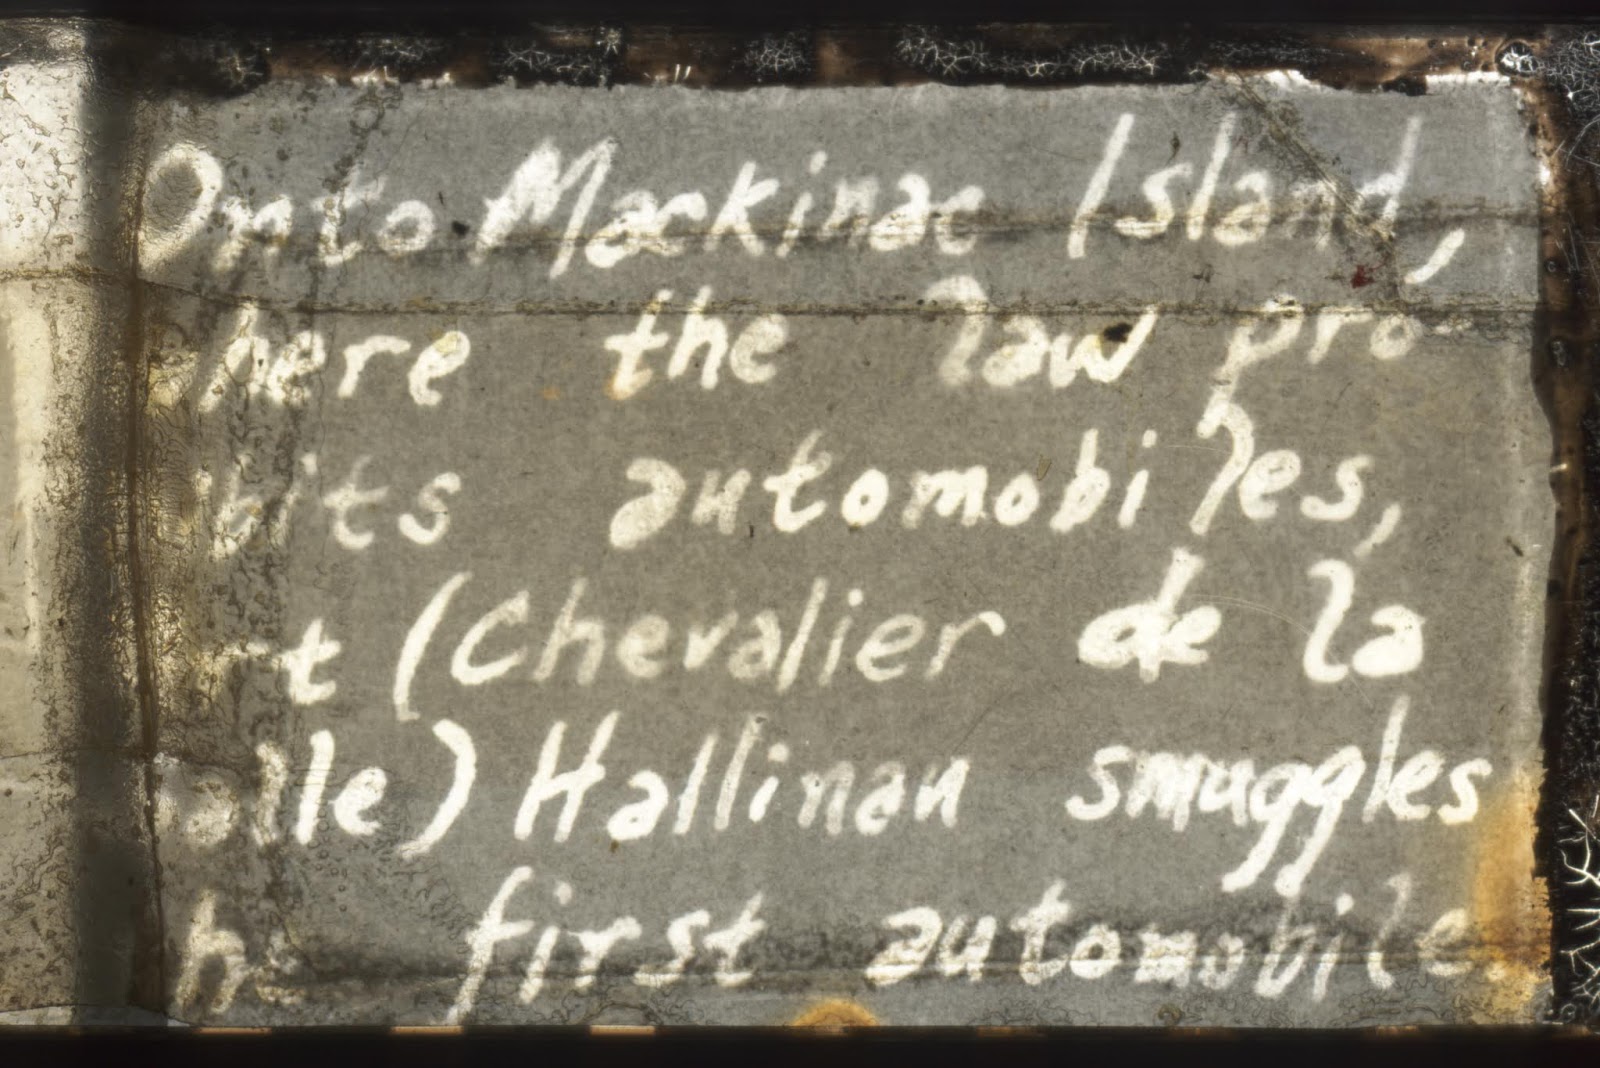 Onto Mackinac Island,
here the law pro-
bits automobiles,
(Chevalier de la
lle) Hallinan smuggles
he first automobile.